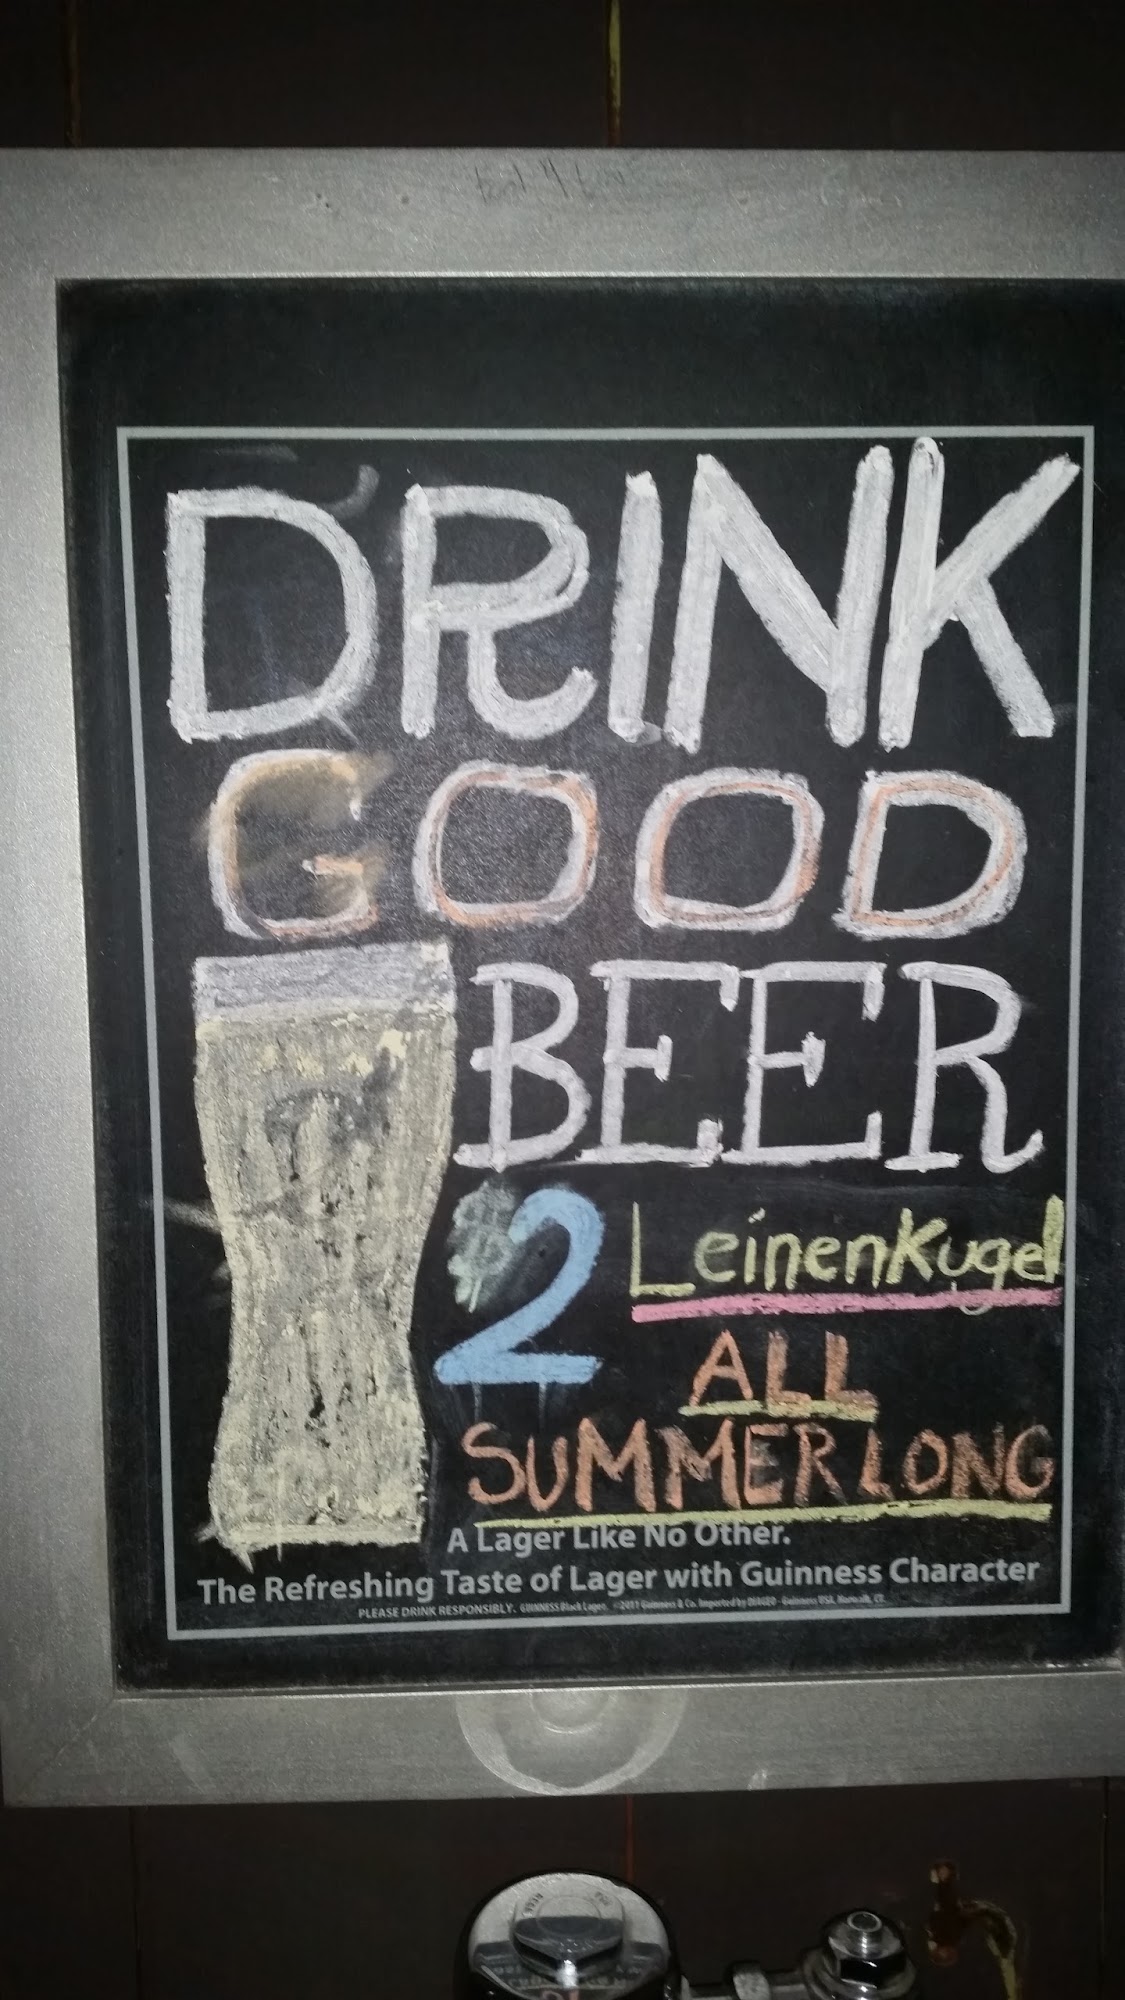 DRINK
GOOD
BEER
$2 LeinenKugel
ALL
SUMMER LONG
A Lager Like No Other.
The Refreshing Taste of Lager with Guinness Character
PLEASE DRINK RESPONSIBLY. GUINNESS Black Lager. ©2011 Guinness & Co. Imported by DIAGEO - Guinness USA, Norwalk, CT.